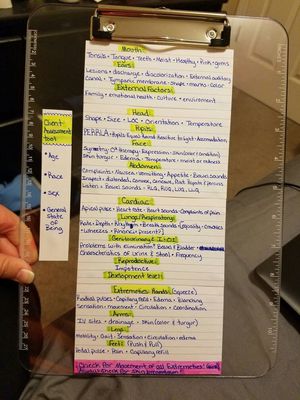 Mouth
Tonsils • Tongue • Teeth • Moist • Healthy, Pink • gums
Ears
Lesions • discharge • discoloration • External auditory
Canal • Tympanic membrane • shape • marks • color
External Factors
Family • emotional health • culture • environment
Head
Shape • Size • Loc • Orientation • Temperature
Pupils
PERRLA • Pupils Equal Round Reactive to Light • Accommodation
Face
Symmetry • O2 therapy • Expression • Skin (color/condition)
Skin turgor • Edema • Temperature • moist or redness
Abdomen
Complaints • Nausea • Vomiting • Appetite • Bowel sounds
Inspect • distended, convex, concave, Flat
Listen • Bowel sounds • RLQ, RUQ, LUQ, LLQ
Cardiac
Apical pulse • Heart rate • Heart sounds • Complaints of pain
Lungs/Respiratory
Rate • Depth • Rhythm • Breath sounds
Genitourinary I + O
Problems with elimination? Bowel & Bladder
Characteristics of Urine & Stool • Frequency
Reproductive
Impotence
Development level?
Extremeties Hands (Squeeze)
Radial pulses • Capillary refill • Edema • Blanching
Sensation • movement • Circulation • Coordination
Arms
IV sites • drainage • skin (color & turgor)
Legs
motility • Gait • Sensation • Circulation • edema
Feet (Push/Pull)
Pedal pulse • Pain • Capillary refill
Check for Movement of all Extremeties
Always Check for Skin Breakdown!
Client
Assessment
tool
• Age
• Race
• Sex
• General
State of
Being